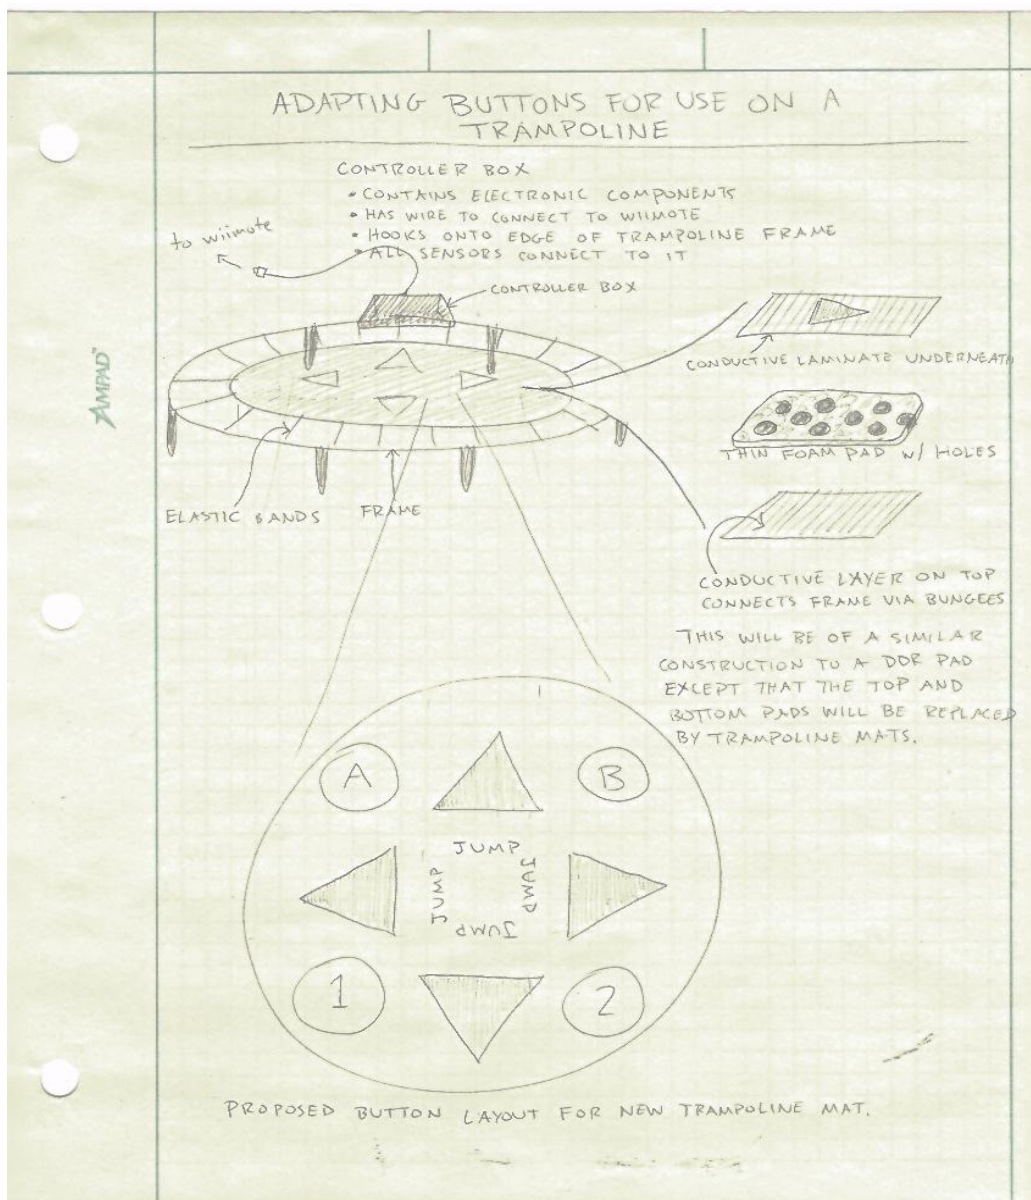 ADAPTING BUTTONS FOR USE ON A
TRAMPOLINE
CONTROLLER BOX
• CONTAINS ELECTRONIC COMPONENTS
• HAS WIRE TO CONNECT TO WIIMOTE
• HOOKS ONTO EDGE OF TRAMPOLINE FRAME
• ALL SENSORS CONNECT TO IT
to wiimote
CONTROLLER BOX
CONDUCTIVE LAMINATE UNDERNEATH
AMPAD™
THIN FOAM PAD W/ HOLES
ELASTIC BANDS
FRAME
CONDUCTIVE LAYER ON TOP
CONNECTS FRAME VIA BUNGEES
THIS WILL BE OF A SIMILAR
CONSTRUCTION TO A DDR PAD
EXCEPT THAT THE TOP AND
BOTTOM PADS WILL BE REPLACED
BY TRAMPOLINE MATS.
A
B
JUMP
JUMP
JUMP
JUMP
1
2
PROPOSED BUTTON LAYOUT FOR NEW TRAMPOLINE MAT.